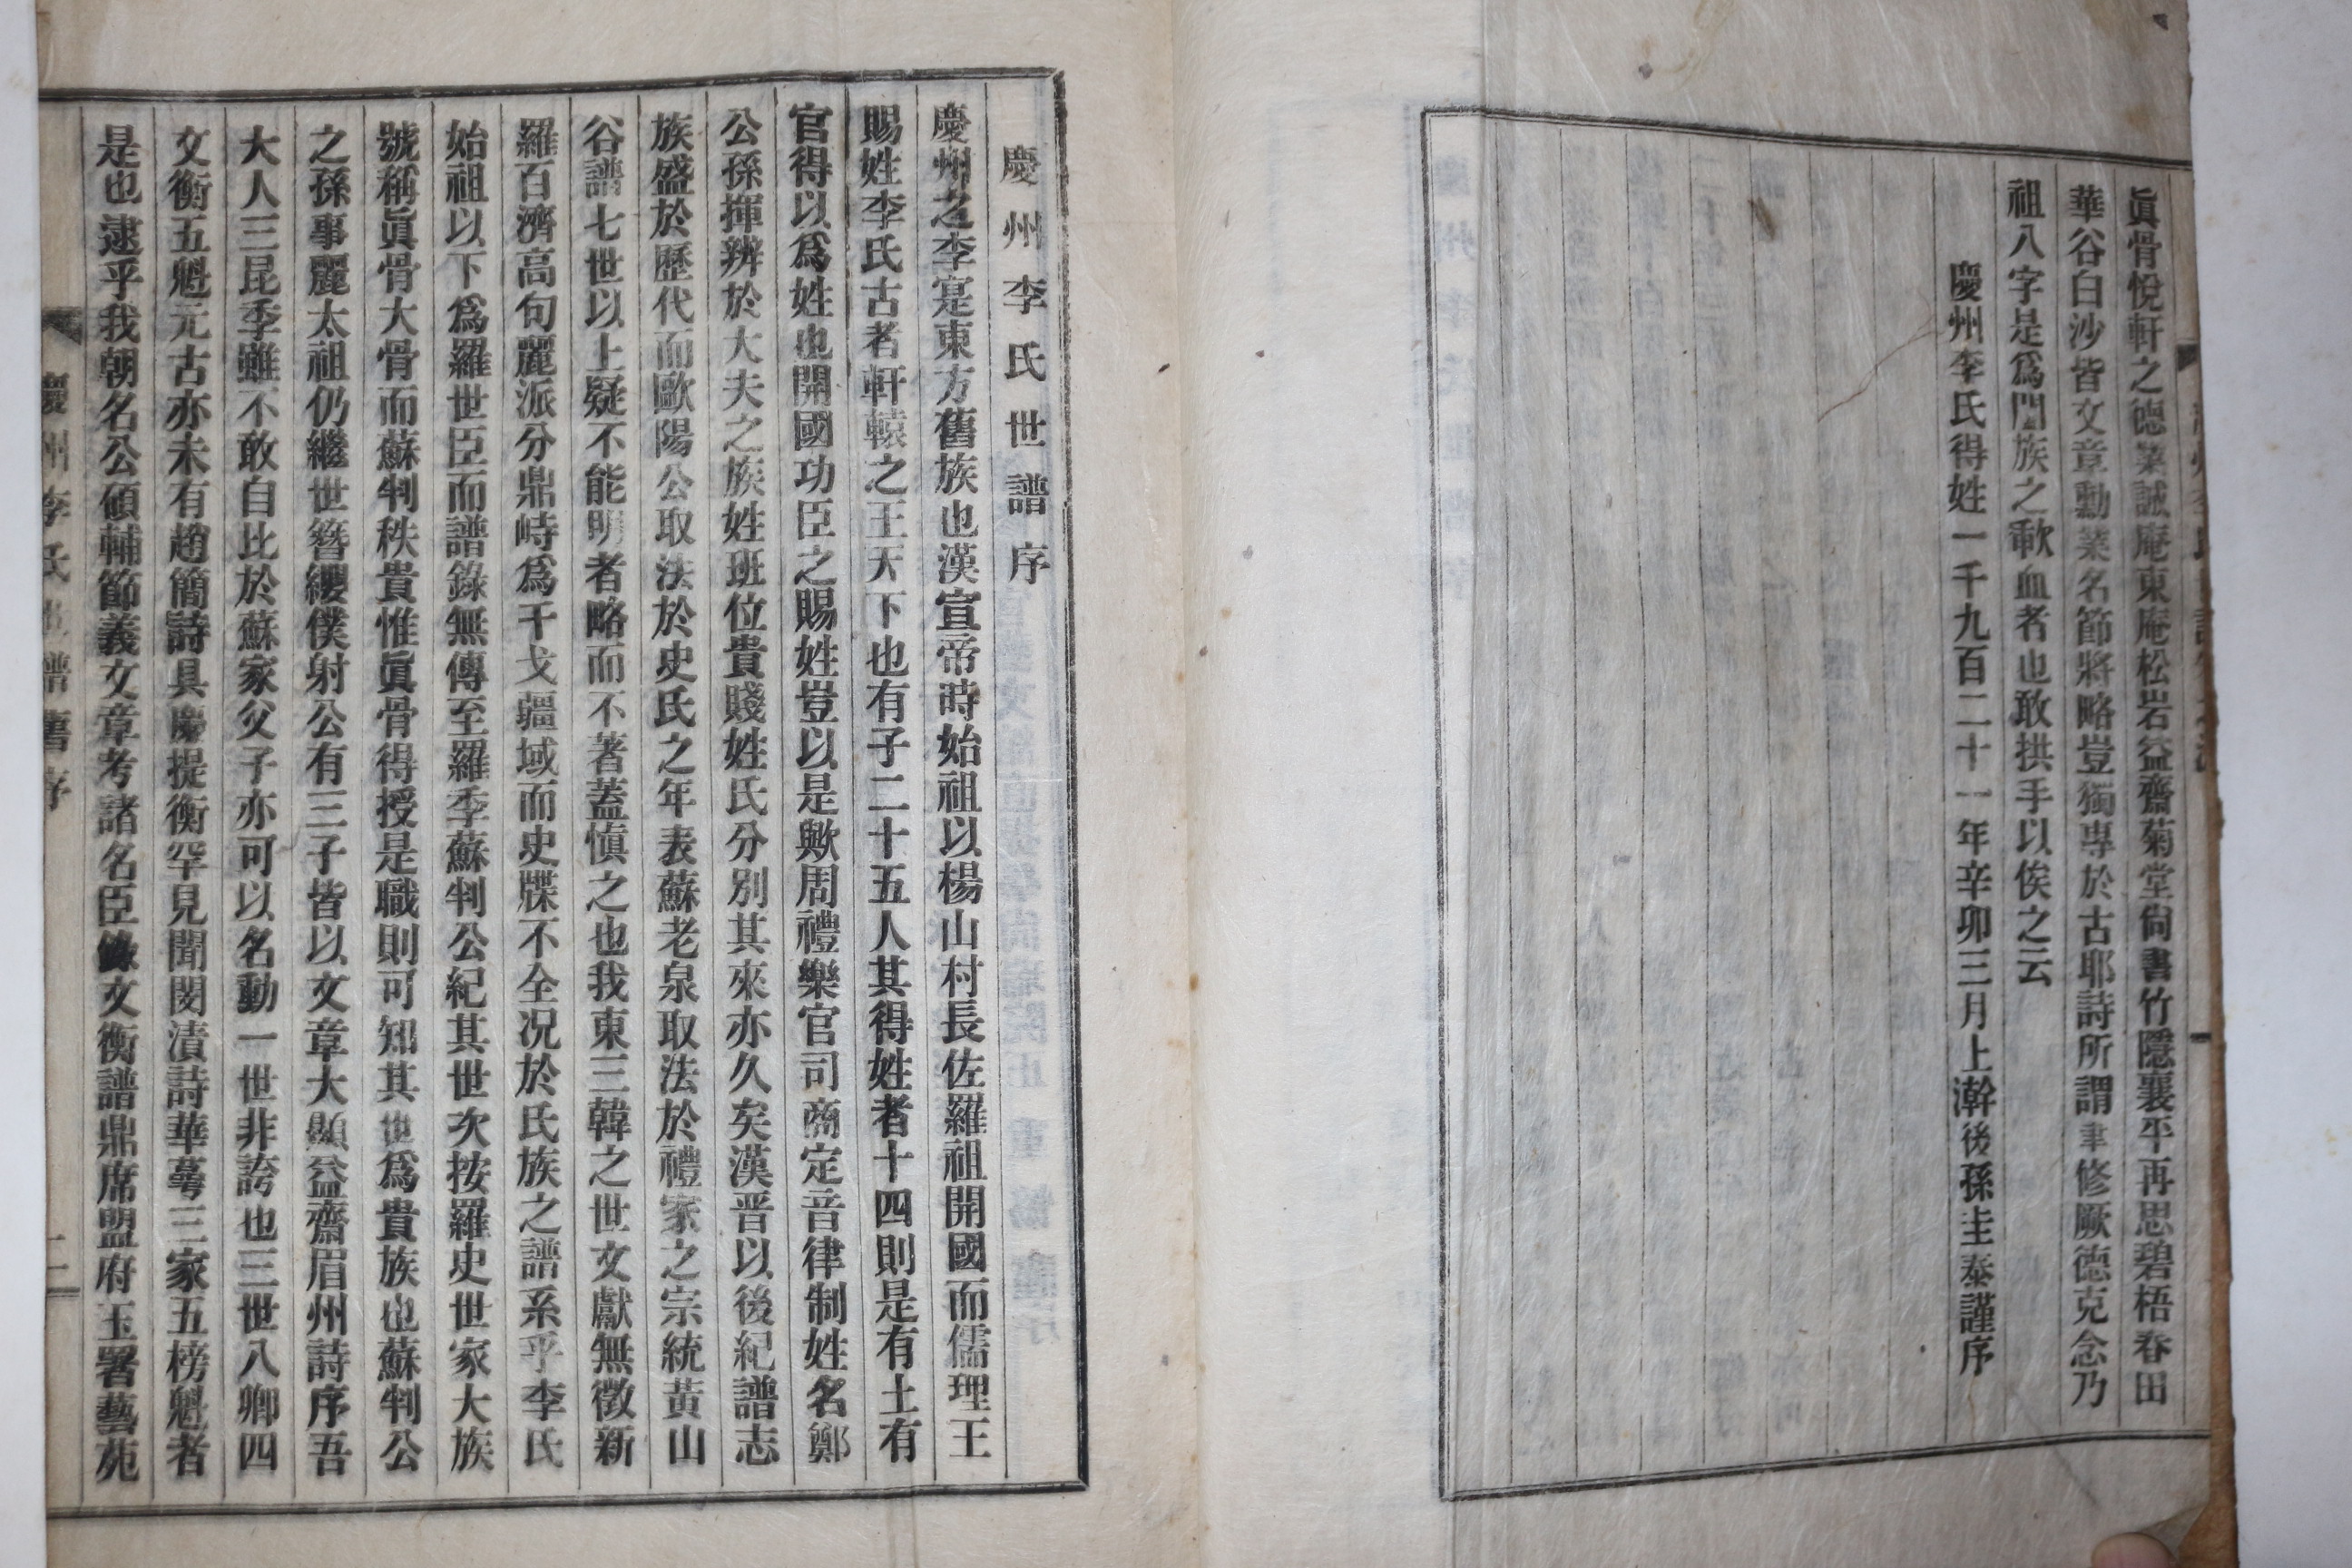 眞骨悅軒之德業誠庵東庵松岩益齋菊堂尙書竹隱襄平再思碧梧春田
華谷白沙皆文章勳業名節將略豈獨專於古耶詩所謂聿修厥德克念乃
祖八字是爲閥族之歃血者也敢拱手以俟之云
慶州李氏得姓一千九百二十一年辛卯三月上澣後孫圭泰謹序
慶州李氏世譜序
慶州之李寔東方舊族也漢宣帝時始祖以楊山村長佐羅祖開國而儒理王
賜姓李氏古者軒轅之王天下也有子二十五人其得姓者十四則是有土有
官得以爲姓也開國功臣之賜姓豈以是歟周禮樂官司商定音律制姓名鄭
公孫揮辨於大夫之族姓班位貴賤姓氏分別其來亦久矣漢晋以後紀譜志
族盛於歷代而歐陽公取法於史氏之年表蘇老泉取法於禮家之宗統黃山
谷譜七世以上疑不能明者略而不著蓋愼之也我東三韓之世文獻無徵新
羅百濟高句麗派分鼎峙爲干戈疆域而史牒不全况於氏族之譜系乎李氏
始祖以下爲羅世臣而譜錄無傳至羅季蘇判公紀其世次按羅史世家大族
號稱眞骨大骨而蘇判秩貴惟眞骨得授是職則可知其世爲貴族也蘇判公
之孫事麗太祖仍繼世簪纓僕射公有三子皆以文章大顯益齋眉州詩序吾
大人三昆季雖不敢自比於蘇家父子亦可以名動一世非誇也三世八卿四
文衡五魁元古亦未有趙簡詩具慶提衡罕見聞閔漬詩華萼三家五榜魁者
是也逮乎我朝名公碩輔節義文章考諸名臣錄文衡譜鼎席盟府玉署藝苑
慶州李氏世譜舊序
二